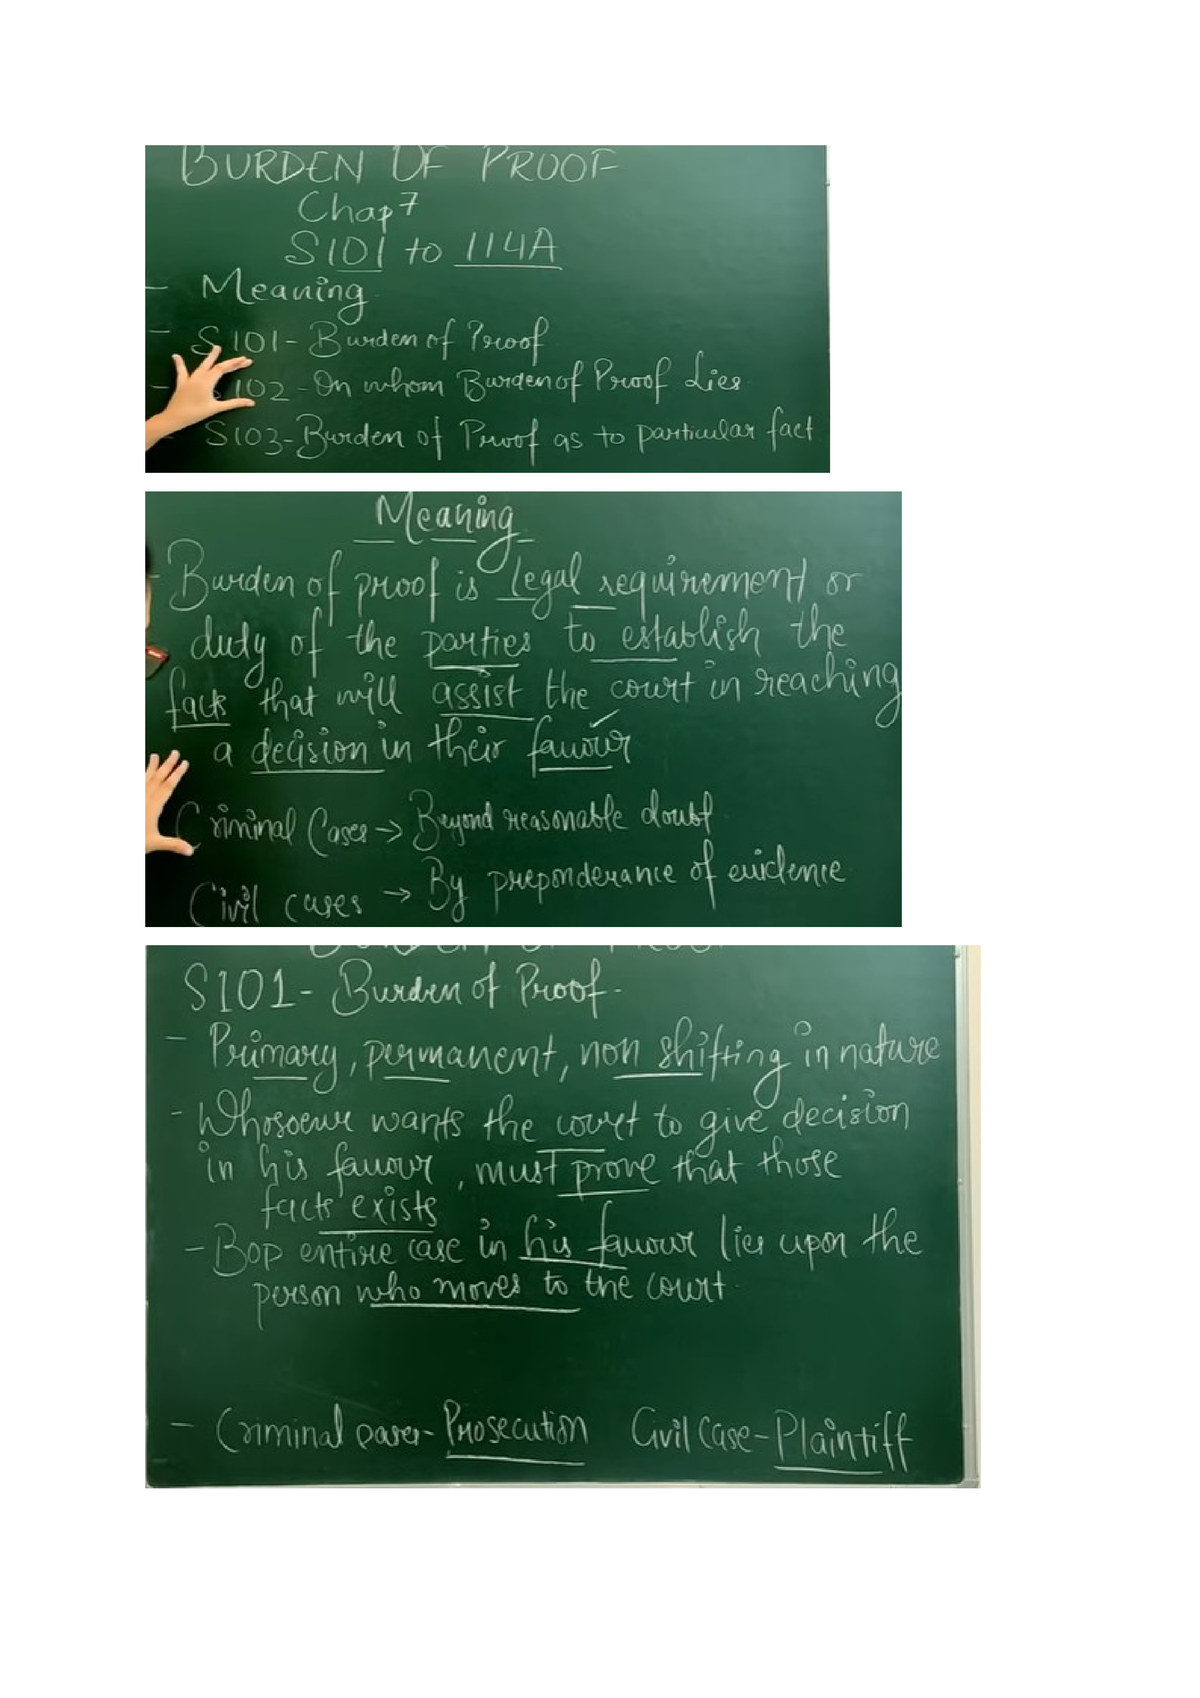 BURDEN OF PROOF
Chap 7
S101 to 114A
- Meaning
- S101- Burden of Proof
- 102 - On whom Burden of Proof Lies
- S103 - Burden of Proof as to particular fact
Meaning
- Burden of proof is Legal requirement or
duty of the parties to establish the
facts that will assist the court in reaching
a decision in their favour
Criminal Cases → Beyond reasonable doubt
Civil cases → By preponderance of evidence
S101 - Burden of Proof -
- Primary, permanent, non shifting in nature
- Whosoever wants the court to give decision
in his favour, must prove that those
facts exists
- BOP entire case in his favour lies upon the
person who moves to the court.
- Criminal cases - Prosecution Civil Case - Plaintiff